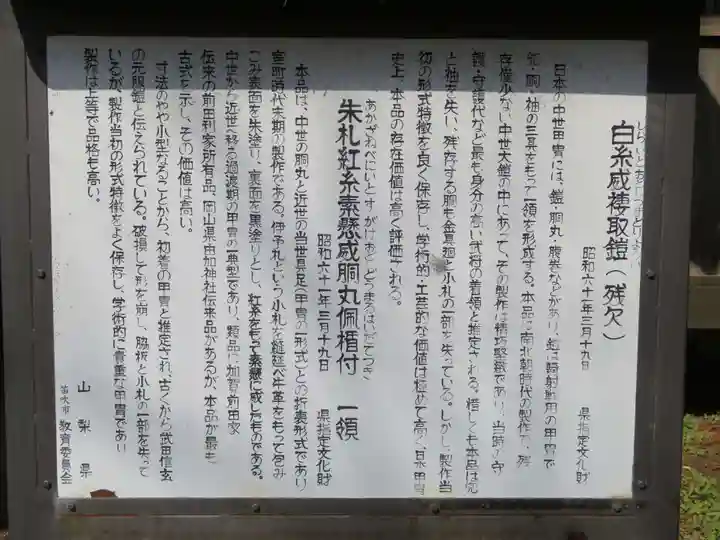 しろいとおどしつまどりよろい
白糸威褄取鎧（残欠）
昭和六十一年三月十九日　県指定文化財
日本の中世甲冑には、鎧・胴丸・腹巻などがあり、鎧は騎射戦用の甲冑で
兜・胴・袖の三具をもって一領を形成する。本品は南北朝時代の製作で、残
存僅少ない中世大鎧の中にあって、その製作は精巧堅緻であり、当時の守
護・守護代など最も身分の高い武将の着領と推定される。惜しくも本品は兜
と袖を失し、残存する胴も金具廻と小札の一部を失っている。しかし、製作当
初の形式特徴を良く保存し、学術的・工芸的な価値は極めて高く、日本甲冑
史上、本品の存在価値は高く評価される。
あかざねべにいとすがけおどしどうまるはいだてつき
朱札紅糸素懸威胴丸佩楯付　一領
昭和六十一年三月十九日　県指定文化財
本品は、中世の胴丸と近世の当世具足（甲冑の一形式）との折衷形式であり
室町時代末期の製作である。伊予札という小札を縫延べ牛革をもって包み
こみ表面を朱塗り、裏面を黒塗りとし、紅糸をもって素懸に威したものである。
中世から近世へ移る過渡期の甲冑の一典型であり、類品に加賀前田家
伝来の前田利家所有品、岡山県由加神社伝来品があるが、本品が最も
古式を示し、その価値は高い。
寸法のやや小型なることから、初着の甲冑と推定され、古くから武田信玄
の元服鎧と伝えられている。破損して形を崩し、脇板と小札の一部を失って
いるが、製作当初の形式特徴をよく保存し、学術的に貴重な甲冑であり
製作は上等で品格も高い。
山梨県
笛吹市教育委員会